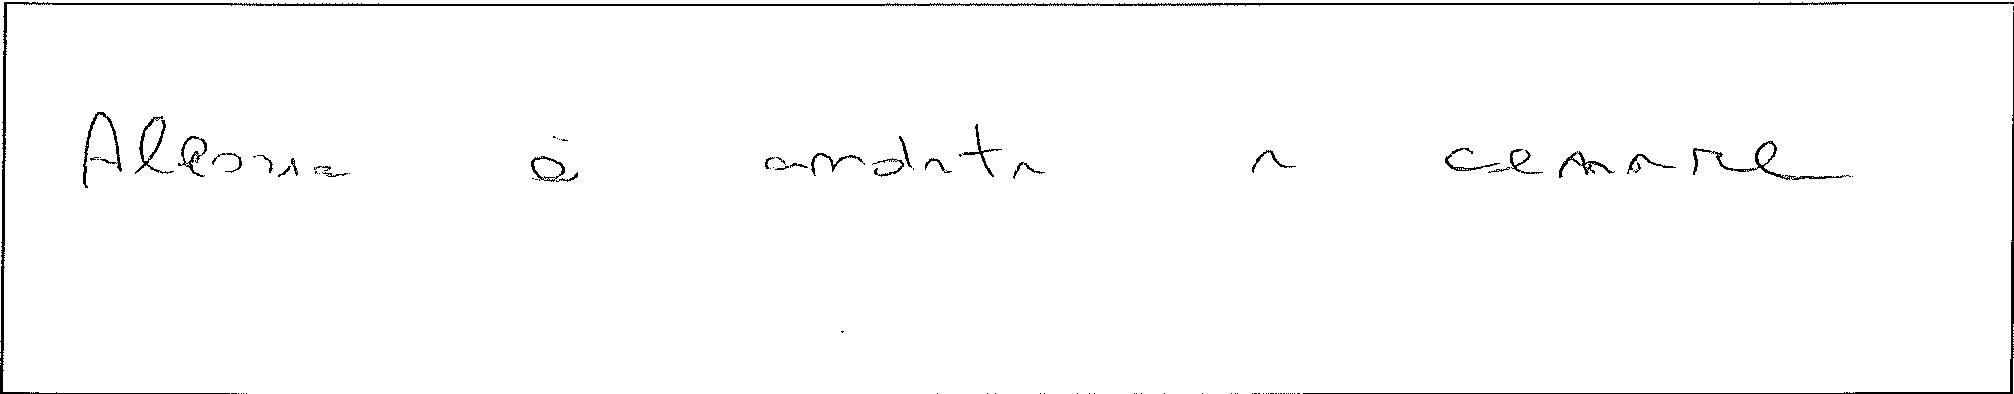 Alessia è andata a cenare